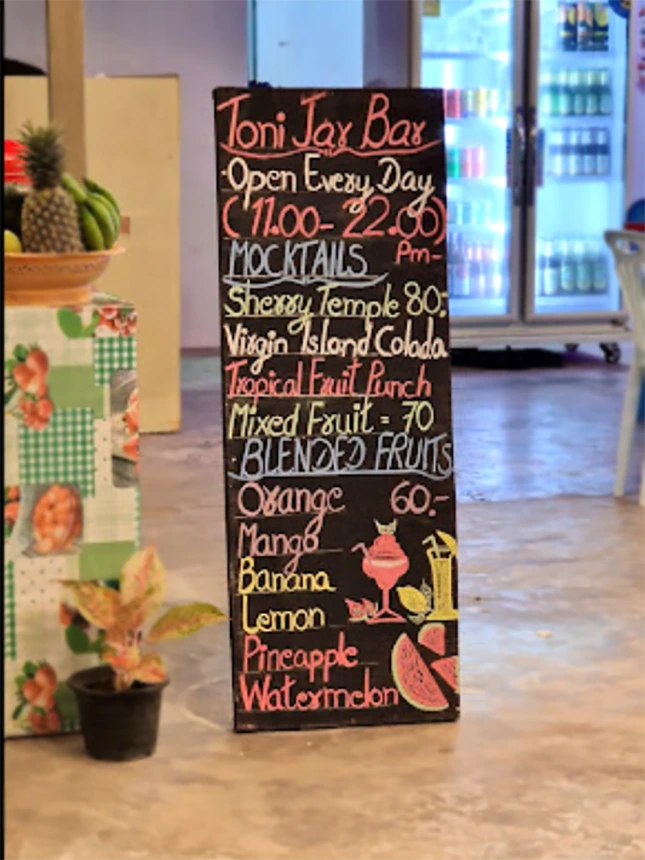 Toni Jar Bar
·Open Every Day
(11.00- 22.00)
Pm-
MOCKTAILS
Sherry Temple 80:
Virgin Island Colada
Tropical Fruit Punch
Mixed Fruit = 70
·BLENDED FRUITS
Orange 60.-
Mango
Banana
Lemon
Pineapple
Watermelon